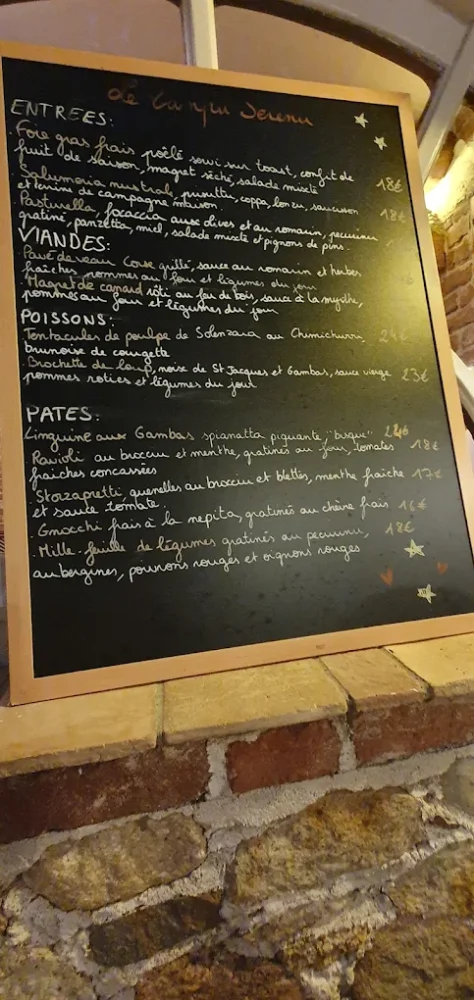 Le Campu Serenu
ENTREES:
. Foie gras frais poêlé servi sur toast, confit de
fruit de saison, magret séché, salade mixte 18€
. Salumeria nustrale, prisuttu, coppa, lonzu, saucisson
et terrine de campagne maison. 18€
. Pasturella, focaccia aux olives et au romarin, pecurinu
gratiné, panzetta, miel, salade mixte et pignons de pins.
VIANDES:
. Pavé de veau Corse grillé, sauce au romarin et herbes
fraîches, pommes au four et légumes du jour
. Magret de canard rôti au feu de bois, sauce à la myrthe,
pommes au four et légumes du jour
POISSONS:
. Tentacules de poulpe de Solenzara au Chimichurri, 24€
brunoise de courgette
. Brochette de loup, noix de St Jacques et Gambas, sauce vierge
pommes roties et légumes du jour 23€
PATES:
Linguine aux Gambas spianatta piquante, "bisque"
. Ravioli au brocciu et menthe, gratinés au four, tomates 18€
fraiches concassées
. Storzapretti, quenelles au brocciu et blettes, menthe fraiche 17€
et sauce tomate.
. Gnocchi frais à la nepita, gratinés au chèvre frais 16€
. Mille-feuille de légumes gratinés au pecurinu, 18€
aubergines, poivrons rouges et oignons rouges